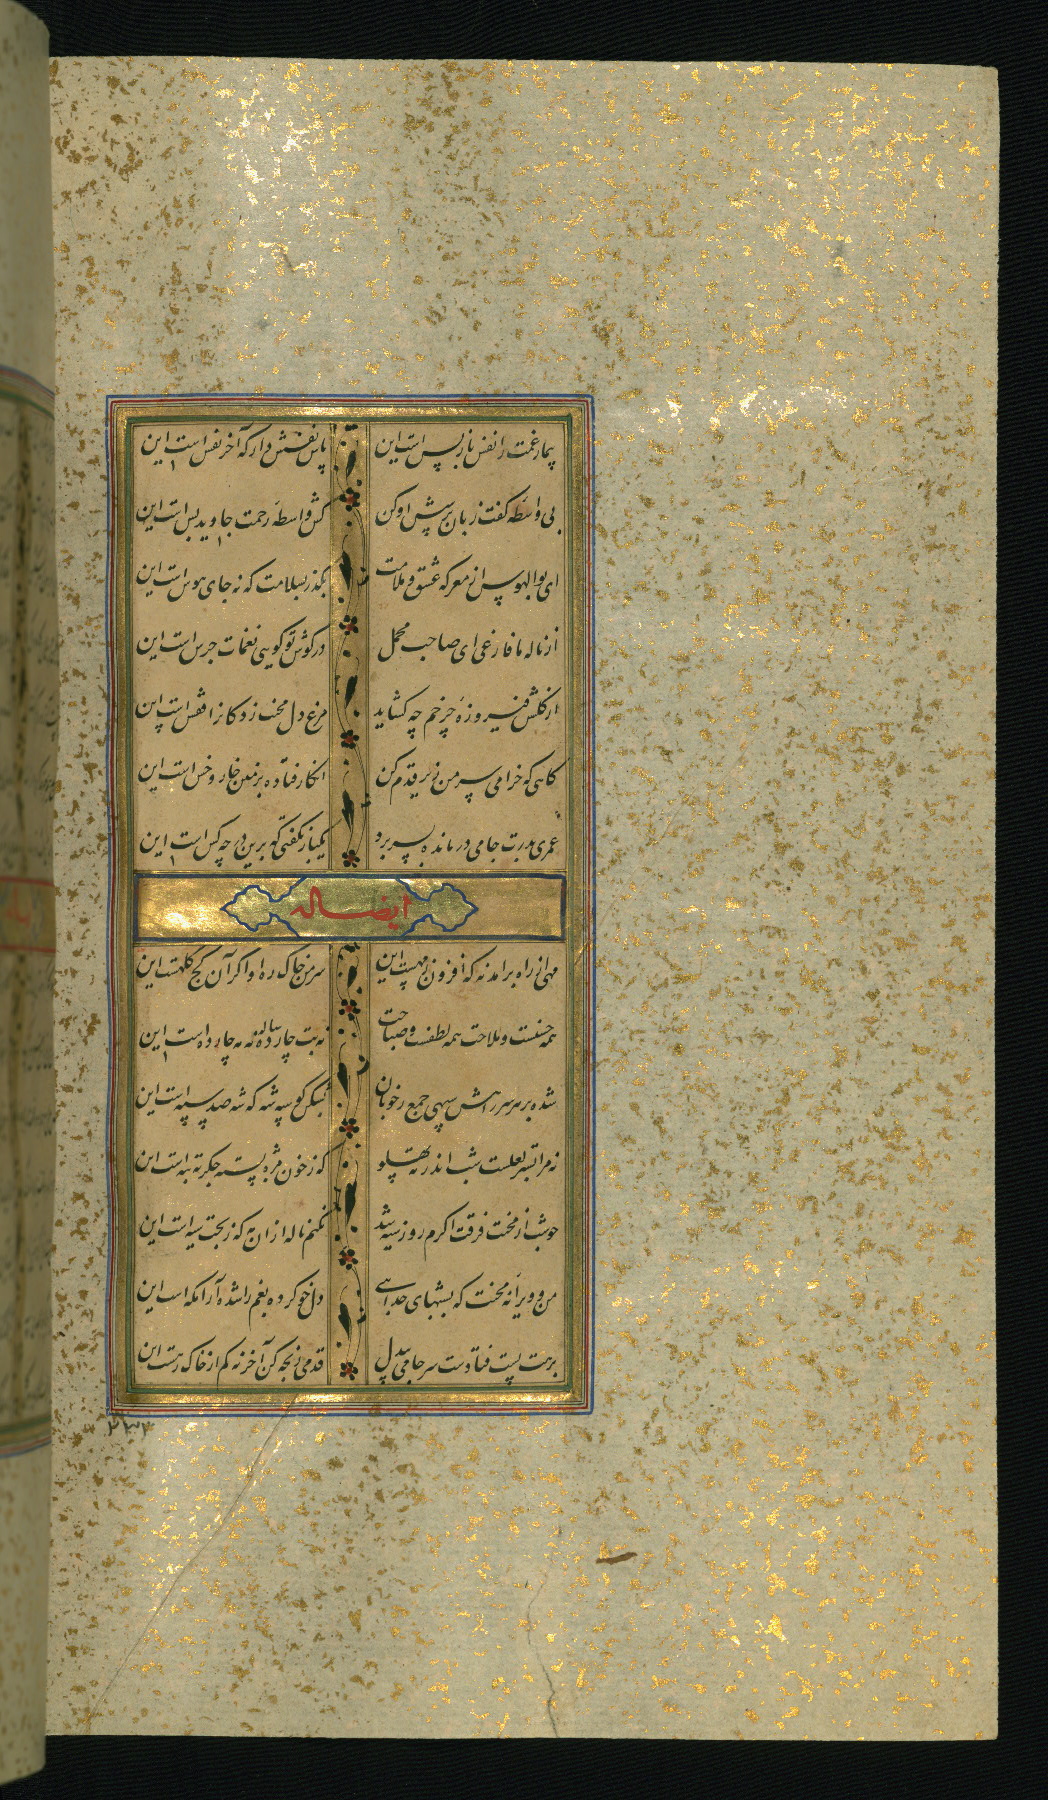 بیمار غمت را نفس باز پس است این
پاس نفسش دار که آخر نفس است این
بی واسطه گفت زبان پرسش او کن
کش واسطه رحمت جاوید بس است این
ای بوالهوس از معرکه عشق و ملامت
بگذر بسلامت که نه جای هوس است این
از ناله ما فارغی ای صاحب محمل
در گوش تو گویی نغمات جرس است این
از گلشن فیروزه چرخم چه گشاید
مرغ دل محنت زدکانرا قفس است این
گاهی که خرامی سر من زیر قدم کن
انگار فتاده بزمین خار و خس است این
عمری بدرت جامی درمانده بسر برد
یکبار نگفتی که برین در چه کس است این
ایضا له
مهی از راه برآمد نه که افزون ز مهیست این
سر من خاک ره او اگر آن کج کلهست این
همه حسنست و ملاحت همه لطفست و صباحت
نه بت چارده ساله نه مه چارده است این
شده بر هر سر راهش سپهی جمع ز خوبان
مه است این که شه صد سپه است این
که ز خون مژه بسته جگر ته بته است این
خوشم از محنت فرقت اگرم روز سیه شد
نکنم ناله از آن که ز بخت سیه است این
من و ویرانه محنت که بشبهای جدایی
دل خو کرده بغم را شده آرامگه است این
برهت پست فتادست سر جامی بیدل
قدمی رنجه کن آخر نه کم از خاک رهست این